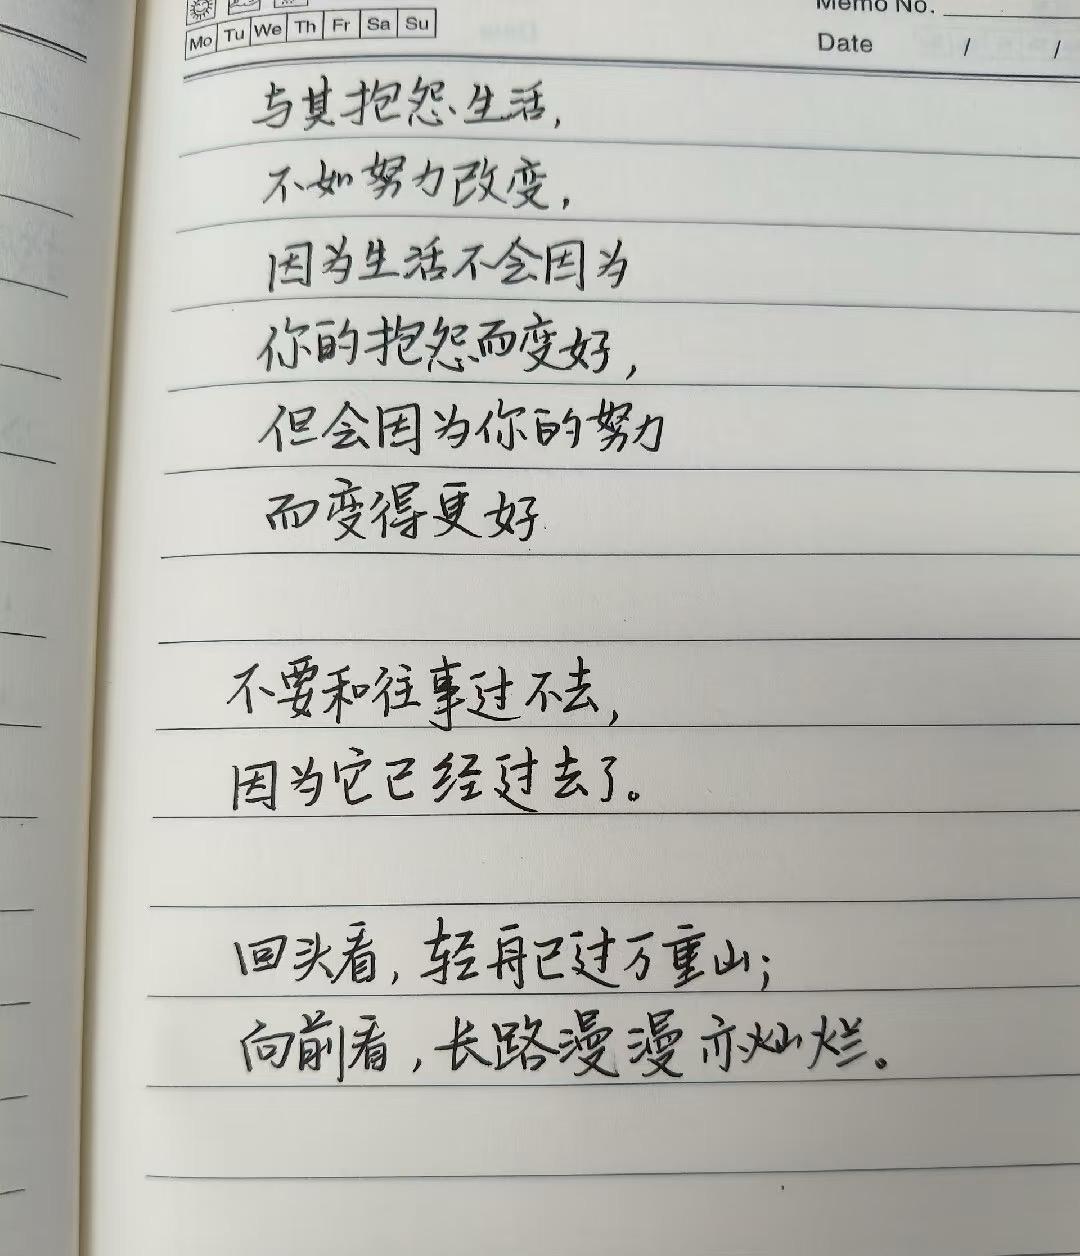 Memo No.
Mo Tu We Th Fr Sa Su
Date / /
与其抱怨生活,
不如努力改变,
因为生活不会因为
你的抱怨而变好,
但会因为你的努力
而变得更好
不要和往事过不去,
因为它已经过去了。
回头看,轻舟已过万重山;
向前看,长路漫漫亦灿烂。